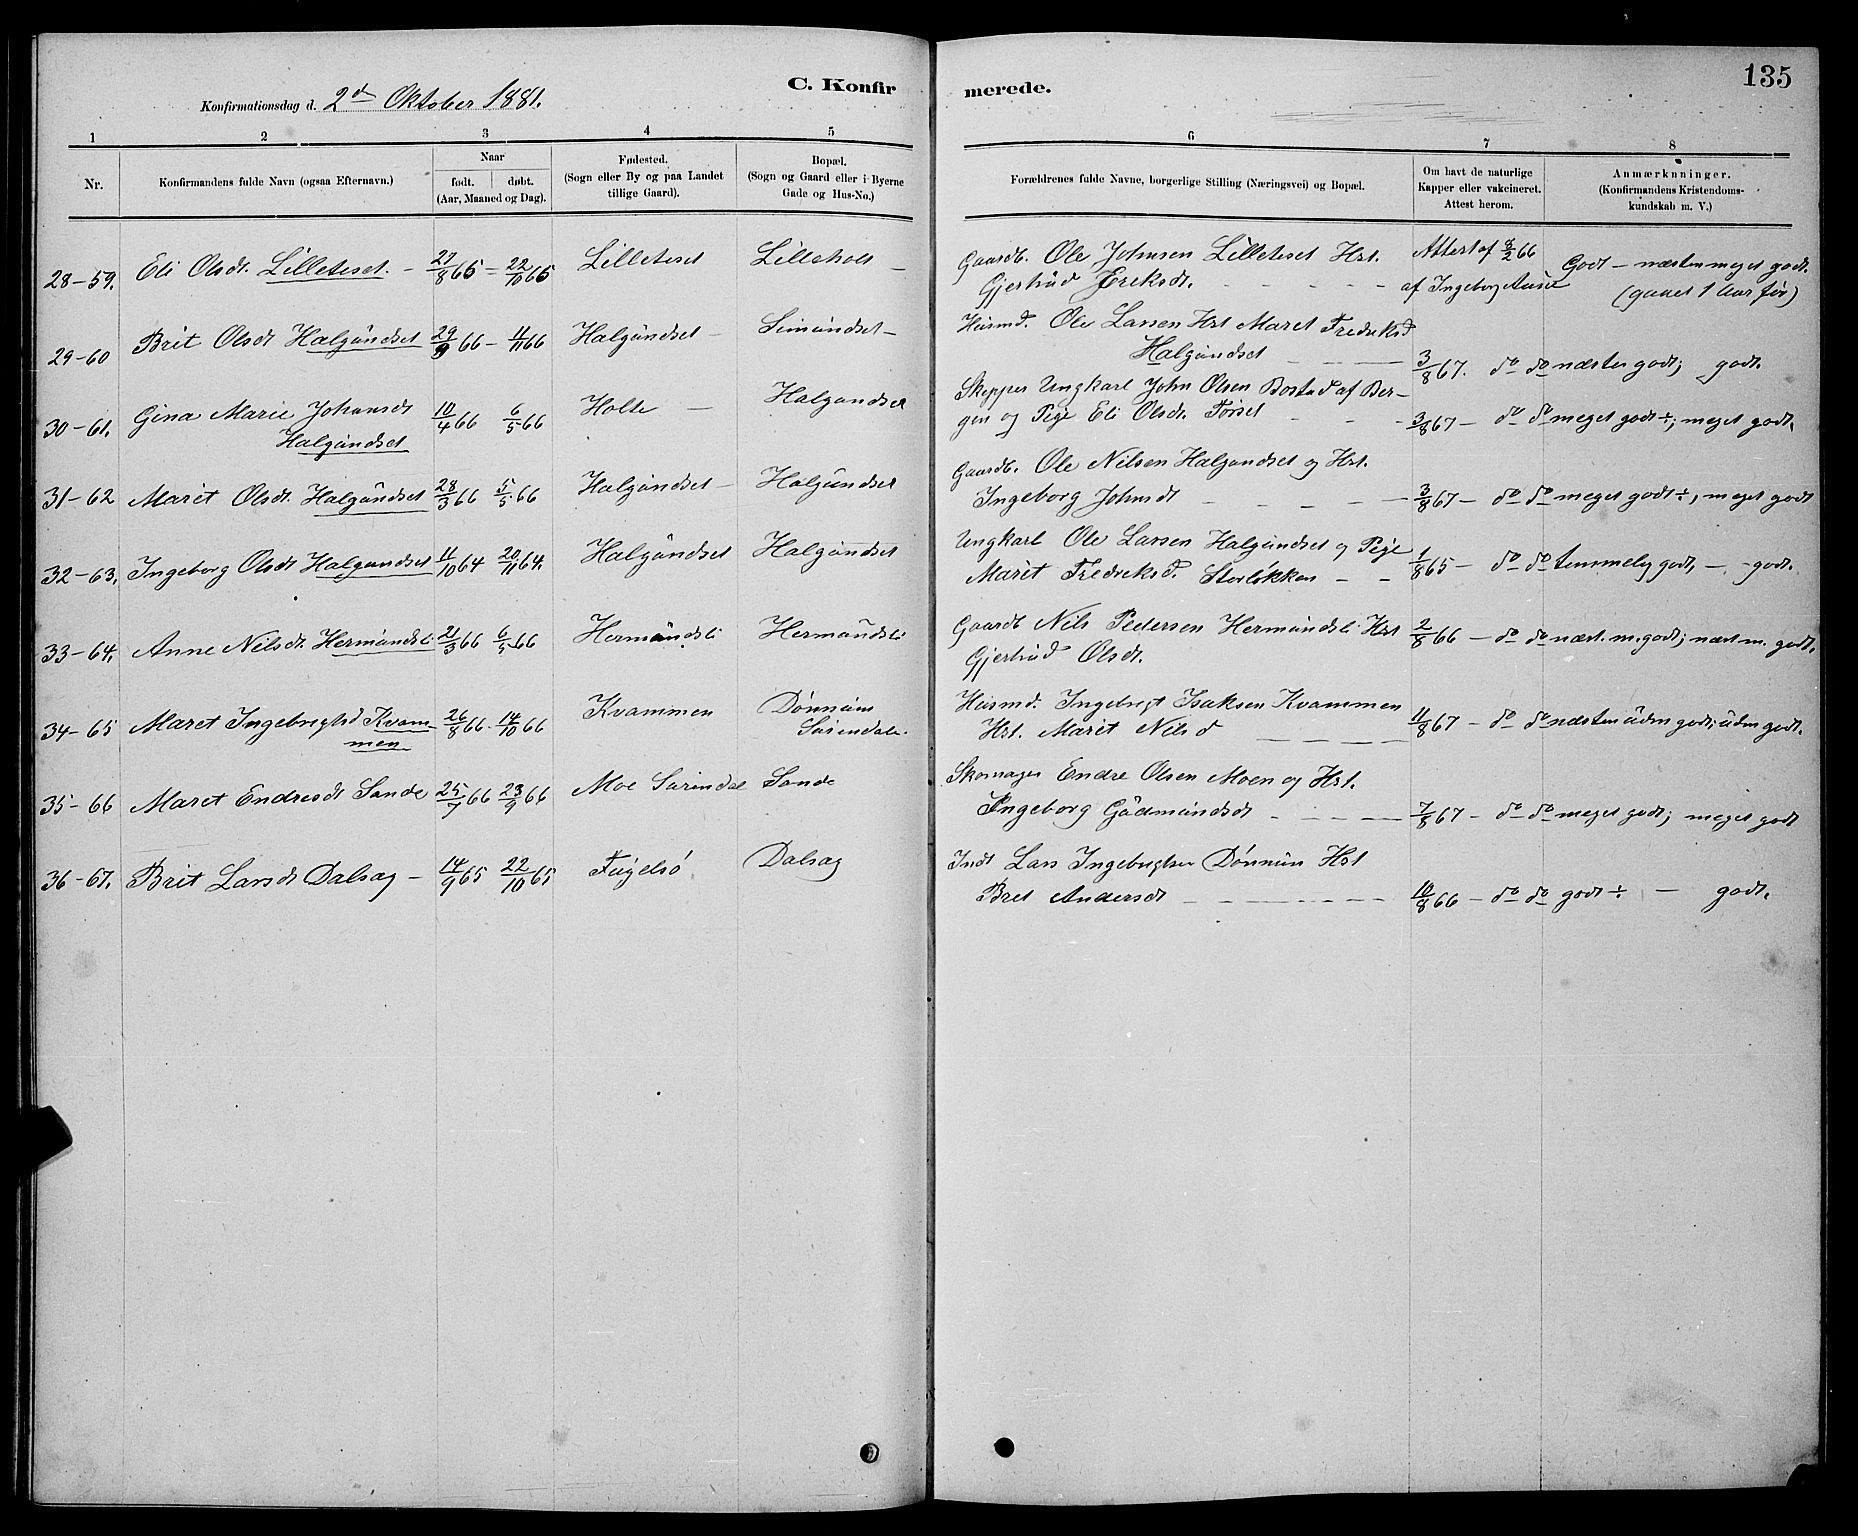 135
C. Konfir merede.
Konfirmationsdag d. 2den Oktober 1881.
1 2 3 4 5 6 7 8
Nr.
Konfirmandens fulde Navn (ogsaa Efternavn.)
Naar
født. døbt.
(Aar, Maaned og Dag).
Fødested.
(Sogn eller By og paa Landet
tillige Gaard).
Bopæl.
(Sogn og Gaard eller i Byerne
Gade og Hus-No.)
Forældrenes fulde Navne, borgerlige Stilling (Næringsvei) og Bopæl.
Om havt de naturlige
Kapper eller vakcineret.
Attest herom.
Anmærknninger.
(Konfirmandens Kristendoms-
kundskab m. V.)
28-59. Eli Olsdt. Lilleteset. - 27/8 65 = 22/10 65 Lilleteset Gaardb. Ole Johnsen Lilleteset Hst. Attest af 8/2 66 Godt - næsten meget godt.
Gjertrud Ereksdt. af Ingeborg (gaaet 1 Aar før)
29-60 Brit Olsdt Halgundset 29/9 66 - 11/11 66 Halgundset - Simundset - Husmd. Ole Larsen Hst Maret Fredriksd
Halgundset 3/8 67. do do næsten godt; godt.
30-61. Gina Marie Johansdt 10/4 66 6/5 66 Holte - Halgundset Skipper Ungkarl John Olsen Bostad af Ber-
Halgundset gen og Pige Eli Olsdt. Torset 3/8 67 - do do meget godt ÷; meget godt.
31-62 Marit Olsdt. Halgundset 28/3 66 5/5 66 Halgundset - Halgundset Gaardb. Ole Nilsen Halgundset og Hst.
Ingeborg Johnsdt 3/8 67 - do do meget godt ÷, meget godt
32-63. Ingeborg Olsdt Halgundset 11/10 64 20/11 64. Halgundset Halgundset Ungkarl Ole Larsen Halgundset og Pige
Marit Fredreksd. Storløkken - - 1/8 65 - do do temmelig godt, - - godt.
33-64. Anne Nilsdt. Hermundsli 21/3 66 6/5 66 Hermundsli Hermundsli Gaardb Nils Pedersen Hermundsli Hst 2/8 66 - do do næst. m. godt; næst m. godt.
Gjertrud Olsdt.
34-65 Maret Ingebrigtsd Kvam 26/8 66 - 14/10 66 Kvammen Dønnum Husmd. Ingebrigt Isaksen Kvammen
men Surendalen. Hst. Marit Nilsd 11/8 67 - do do næsten udm godt; udm godt.
35-66 Maret Endresdt Sande 25/7 66 23/9 66 Moe Surendal Sande Skomager Endre Olsen Moen og Hst.
Ingeborg Gudmundsdt 7/8 67 - do do meget godt; meget godt
36-67. Brit Larsdt Dalsag - 14/9 65 22/10 65 Fugelsø Dalsag Indt Lars Ingebrigtsen Dønnum Hst
Bret Andersdt 10/8 66 - do do godt ÷ - godt.